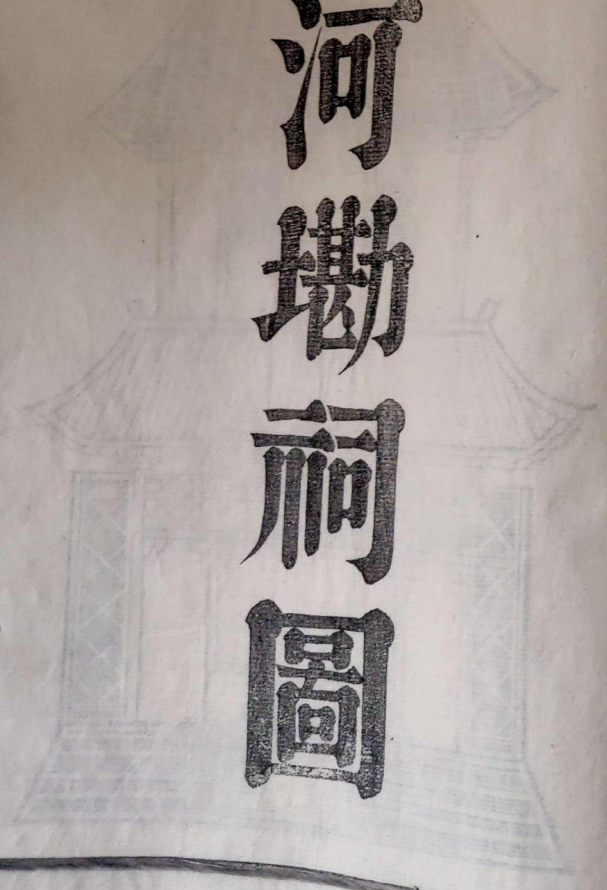 河墈祠圖